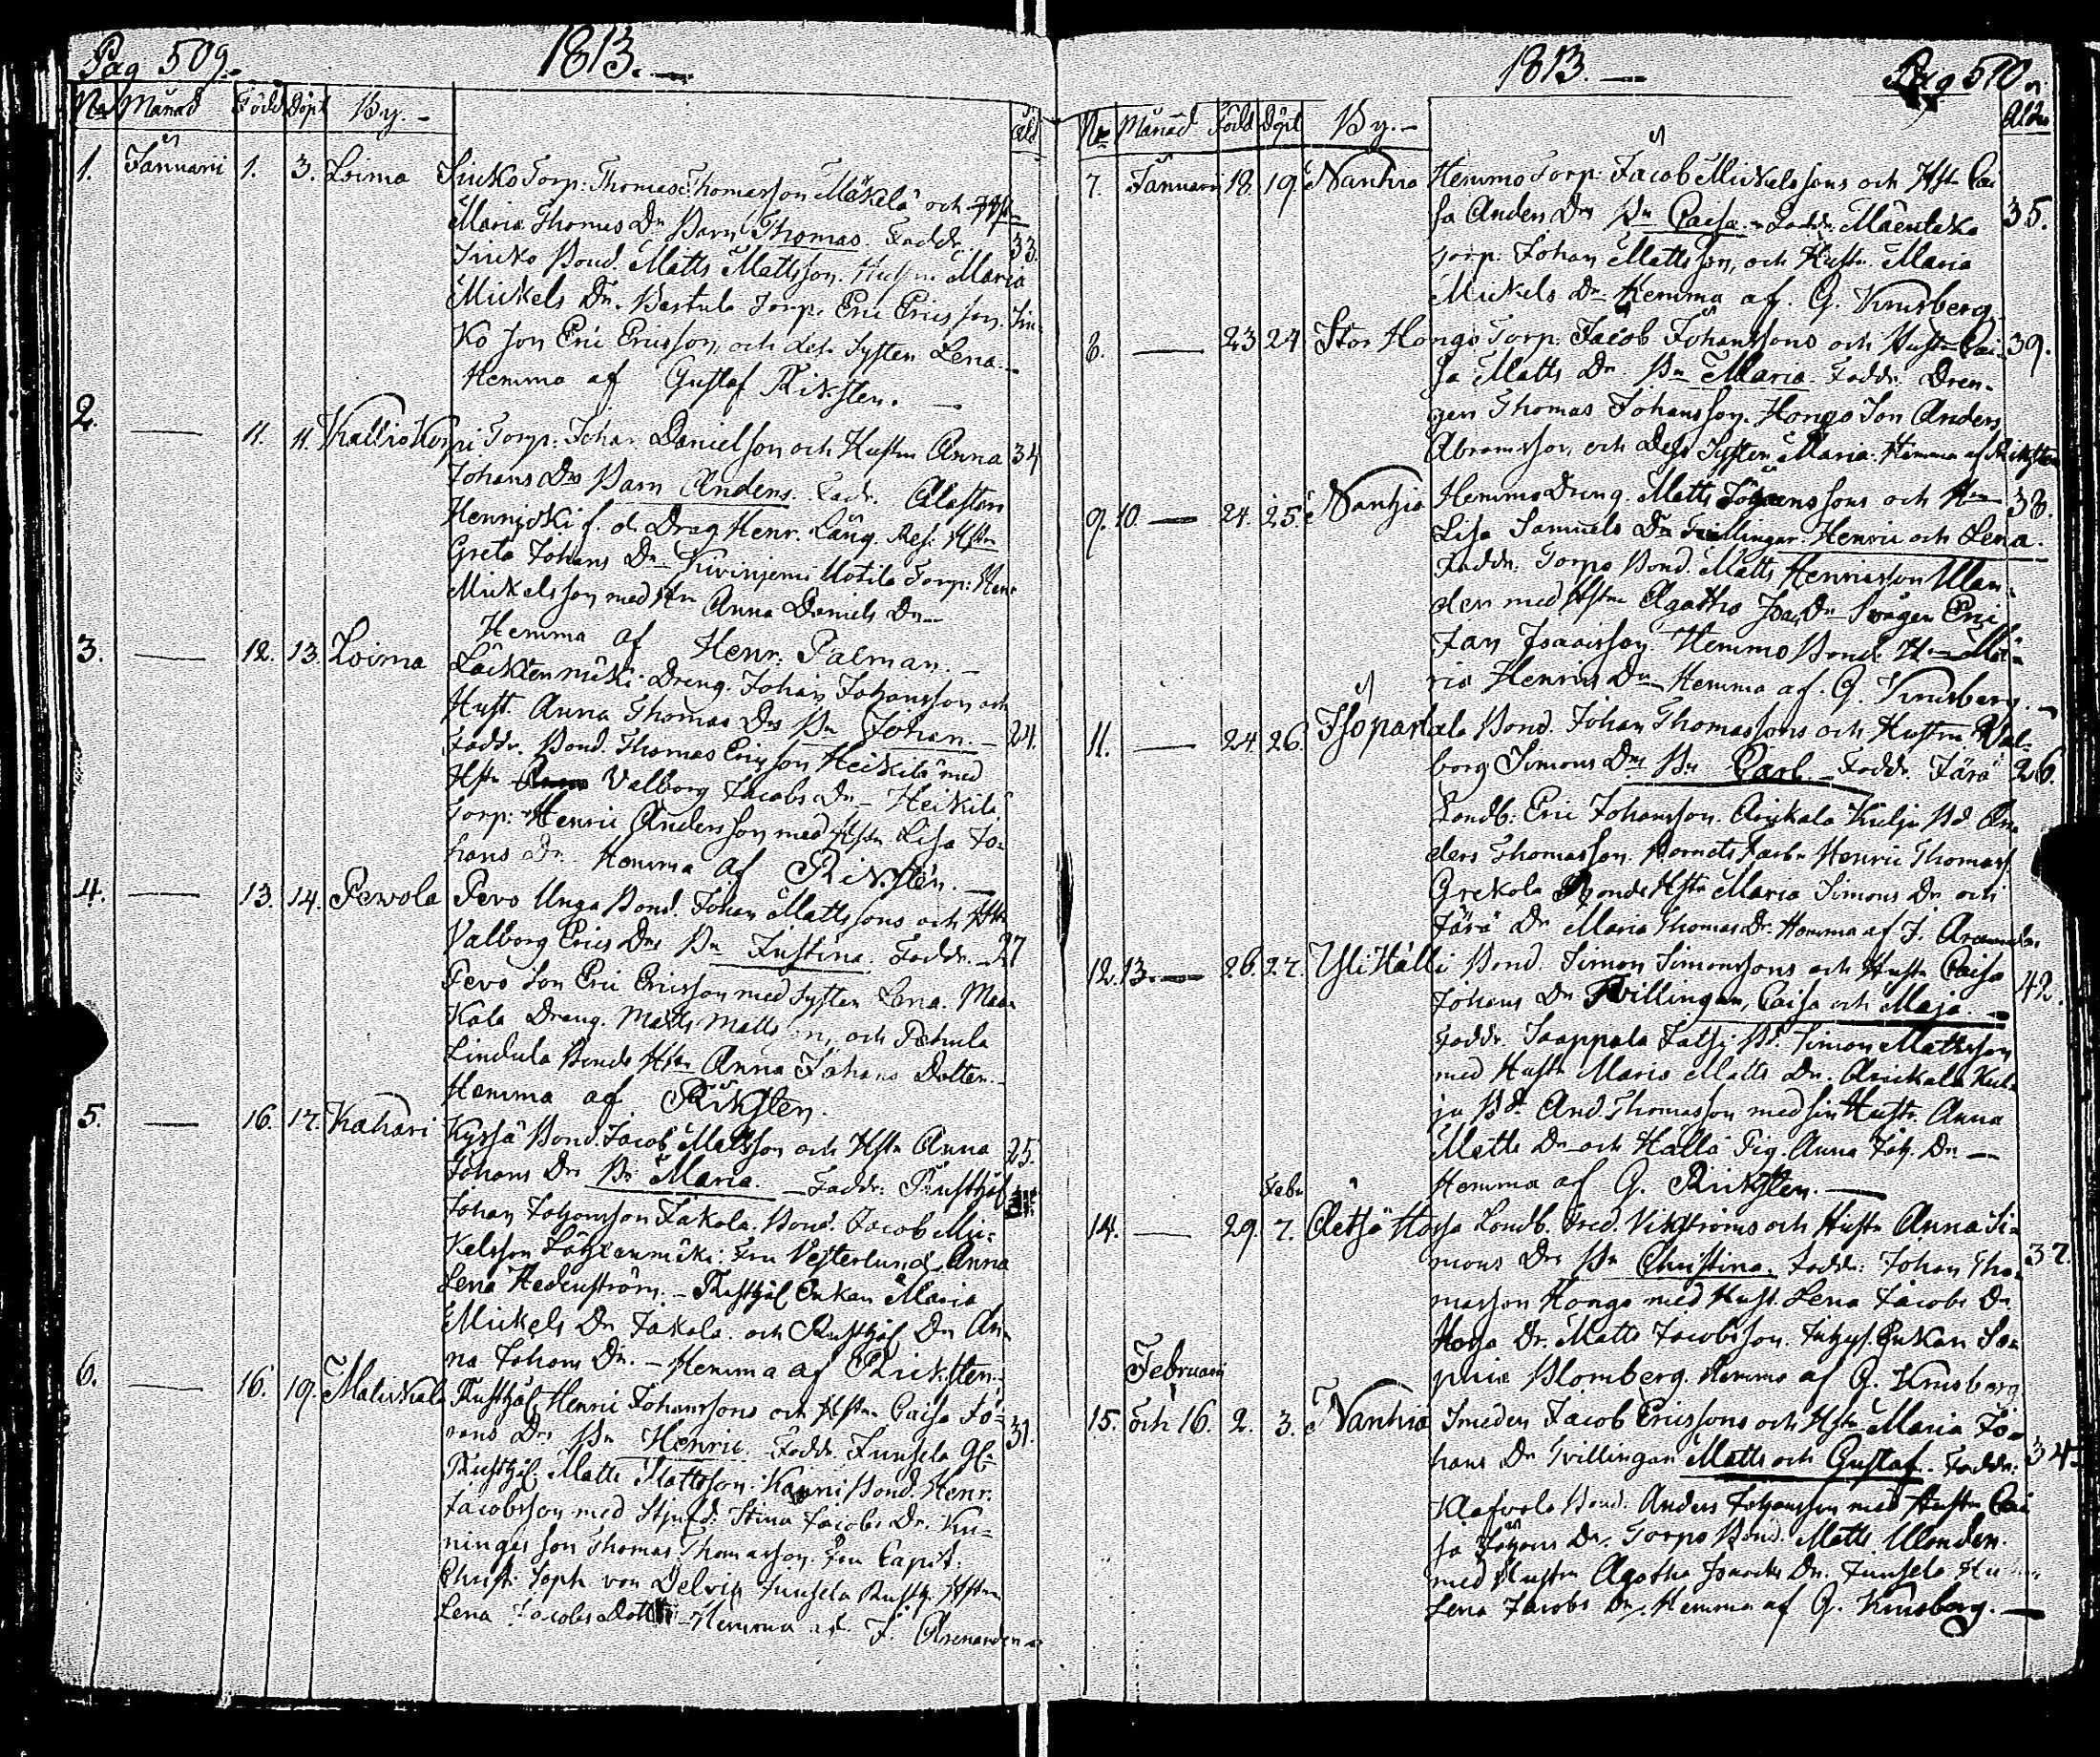 Pag 509.
1813.
No Månad Född Döpt By. Åld
1. Januarii 1. 3. Loima Sinko Torp: Thomas Thomasson Mäkelä och Hst
Maria Thomas Dr Barn Thomas. Faddr. 33.
Sinko Bond. Matts Mattsson. Hustr. Maria
Mickels Dr. Bertula Torp. Eric Ericsson. Sin-
ko son Eric Ericsson, och dess Syster Lena.
Hemma af Gustaf Riksten.
2. — 11. 11. Kalliokorpi Torp: Johan Danielsson och Hustru Anna 34
Johans Drs Barn Anders. Fadr. Alastaro
Hennjoki f. d. Drag Henr. Lång. Hstr
Greta Johans Dr Kivinjemi Uotila Torp: Hen.
Mickelsson med Hstr Anna Daniels Dr
Hemma af Henr: Palman.
3. — 12. 13. Loima Dreng. Johan Johansson och
Hust. Anna Thomas Drs Bn Johan. 24.
Faddr. Bond. Thomas Ericsson Heikilä med
Hstr Valborg Jacobs Dr Heikilä
Torp: Henric Andersson med Hstr Lisa Jo-
hans Dr. Hemma af Riksten.
4. — 13. 14. Pewola Pevo Unga Bond. Johan Mattssons och Hstr
Valborg Erics Drs Bn Justina. Faddr. 27
Pevo Son Eric Ericsson med Syster Lena. Maa-
kala Dreng. Matts Mattsson, och
Lindula Bonde Hstr Anna Johans Dotter.
Hemma af Riksten.
5. — 16. 17. Kahari Kyrsä Bond. Jacob Mattsson och Hstr Anna 25.
Johans Dr Bn Maria. — Faddr: Rusthål
Johan Johansson Jakola. Bond. Jacob Mi-
kelsson Fru Vesterlund. Anna
Lena Hedenström. — Rusthål Enkan Maria
Mickels Dr Jakola. och Rusthål Dr An-
na Johans Dr. — Hemma af Riksten.
6. — 16. 19. Maliskala Rusthål. Henric Johanssons och Hstr Caisa Jo-
hans Drs Bn Henric Faddr. Junsela Gl. 31.
Rusthål. Matts Mattsson. Kauni Bond. Henr.
Jacobsson med Stjufd. Stina Jacobs Dr. Ku-
ninges son Thomas Thomasson. Fru Capit.
Christ: Soph. von Delvig Junsela Rusth. Hstr
Lena Jacobs Dotter Hemma af J.
1813.
Pag 510.
No Månad Född Döpt By. Ålder
7. Januarii 18. 19. Nanhia Hemmo Torp: Jacob Mickelssons och Hstr Cai
sa Anders Drs Bn Caisa. Faddr. 35.
Torp. Johan Mattsson, och Hustr. Maria
Mickels Dr Hemma af. G. Kinsberg.
8. — 23 24 Stor Hongo Torp: Jacob Johanssons och Hustr Cai- 39.
sa Matts Dr. Bn Maria. Faddr. Dren-
gen Thomas Johansson. Hongo Son Anders
Abramsson, och Dess Syster Maria. Hemma af Riksten
9. 10 — 24. 25. Nanhia Hemmo Dreng. Matts Johanssons och Hstr 38.
Lisa Samuels Dr Tvillingar Henric och Lena.
Faddr. Torpo Bond. Matts Henricsson Ulan-
der med Hstr Agatha Isa. Dr Eric
Isaacsson. Hemmo Bond. Hstr Ma-
ria Henrics Dr Hemma af. G. Kinsberg.
11. — 24. 26. Isopartala Bond. Johan Thomassons och Hustru Val-
borg Simons Drs Bn Carl. Faddr. Järä 26.
Landb. Eric Johansson. Anikala Kulju Bd An-
ders Thomasson. Barnets Farbr Henric Thomass.
Grekola Bonde Hstr Maria Simons Dr och
Järä Dr Maria Thomas Dr. Hemma af J.
12. 13. — 26. 27. Yli Halli Bond. Simon Simonssons och Hustr Caisa 42.
Johans Dr Tvillingar, Caisa och Maja.
Faddr. Saappala Bd. Simon Mattsson
med Hustr Maria Matts Dr. Anikala Kul-
ju Bd. And. Thomasson med sin Hustr. Anna
Matts Dr och Halla Pig. Anna Joh. Dr —
Hemma af G. Riksten.
Febr
14. — 29. 7. Aetsä Hoja Landb. Fred. Vikströms och Hustr Anna Si- 37.
mons Dr Bn Christina. Faddr: Johan Tho-
masson Hongo med Hust. Lena Jacobs Dr.
Hoja Dr. Matts Jacobsson. Enkan So-
phia Blomberg. Hemma af G. Kinsberg
Februarii
15. och 16. 2. 3. Nanhia Smeden Jacob Ericssons och Hstr Maria Jo-
hans Dr Tvillingar Matts och Gustaf. Faddr: 34.
Klafvola Bond. Anders Johansson med Hustr Cai
sa Johans Dr. Torpo Bond. Matts Ulander.
med Hustr Agatha Isaacks Dr. Junsela
Lena Jacobs Dr. Hemma af G. Kinsberg.